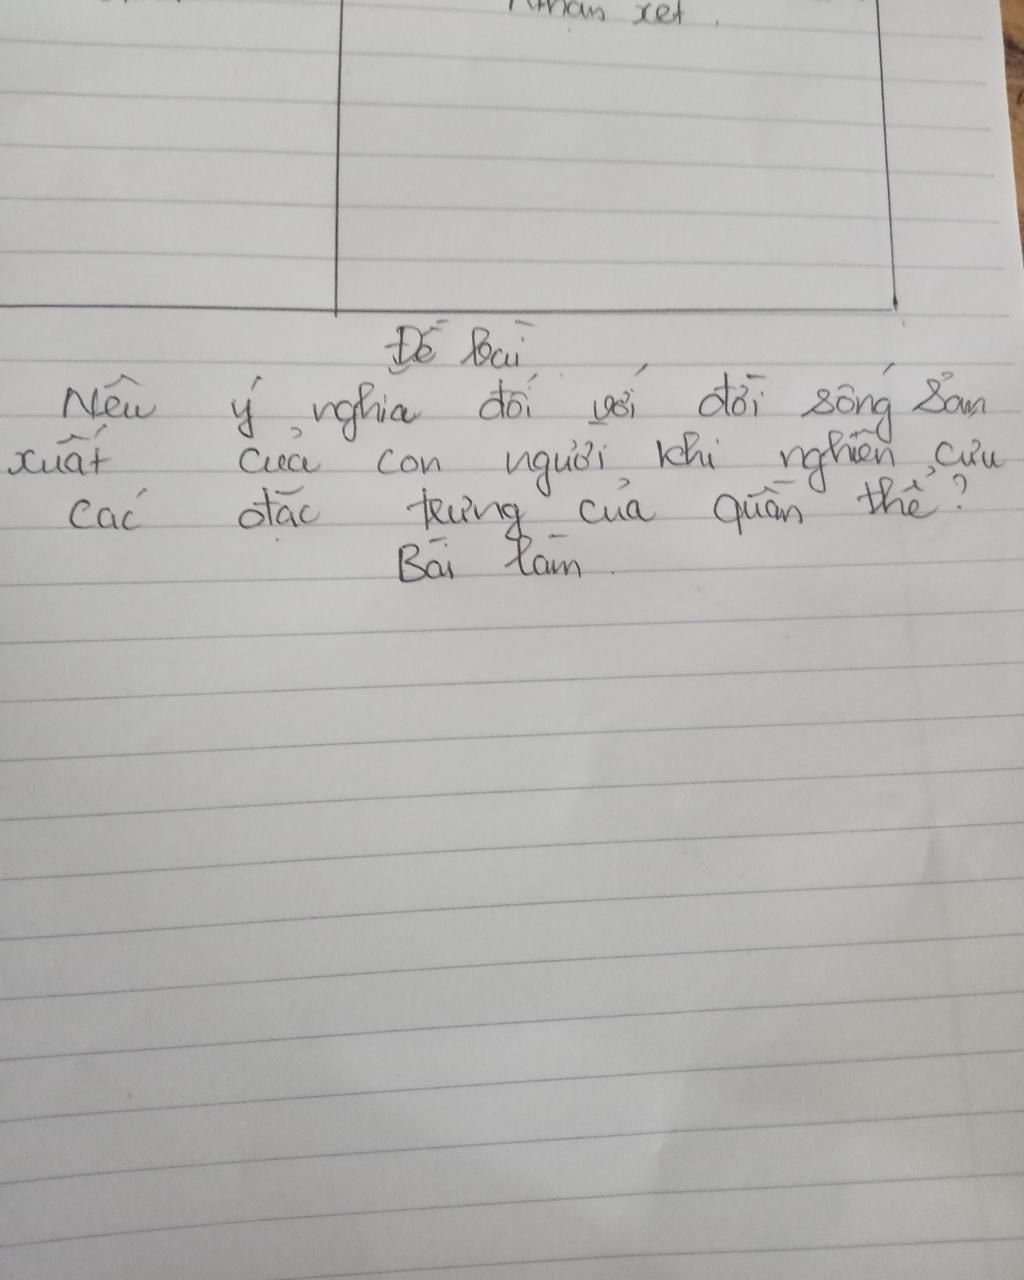 Nhận xét.
Đề bài
Nêu ý nghĩa đối với đời sống sản
xuất của con người khi nghiên cứu
các đặc trưng của quần thể?
Bài làm.